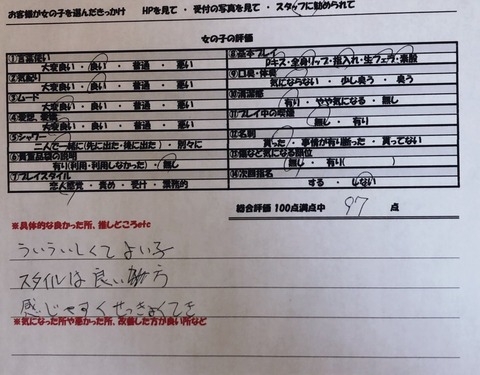 お客様が女の子を選んだきっかけ　HPを見て ・ 受付の写真を見て ・ スタッフに勧められて
女の子の評価
①言葉使い
大変良い ・ 良い ・ 普通 ・ 悪い
②気配り
大変良い ・ 良い ・ 普通 ・ 悪い
③ムード
大変良い ・ 良い ・ 普通 ・ 悪い
④
大変良い ・ 良い ・ 普通 ・ 悪い
⑤シャワー
二人で一緒に(先に出た・後に出た) ・ 別々に
⑥貴重品袋の説明
有り(利用・利用しなかった) ・ 無し
⑦プレイスタイル
恋人感覚 ・ 責め ・ 受け ・ 業務的
⑧基本プレイ
Dキス・全身リップ・指入れ・生フェラ・素股
⑨口臭・体臭
気にならない ・ 少し臭う ・ 臭う
⑩清潔感
有り ・ やや気になる ・ 無し
⑪プレイ中の喫煙
無し ・ 有り
⑫名刺
貰った ・ 事情が有り断った ・ 貰ってない
⑬傷など気になる部位
無し ・ 有り( )
⑭次回指名
する ・ しない
総合評価 100点満点中 97 点
※具体的な良かった所、推しどころetc
ういういしくてよい子
スタイルは良い
感じやすくせっきょくてき
※気になった所や悪かった所、改善した方が良い所など